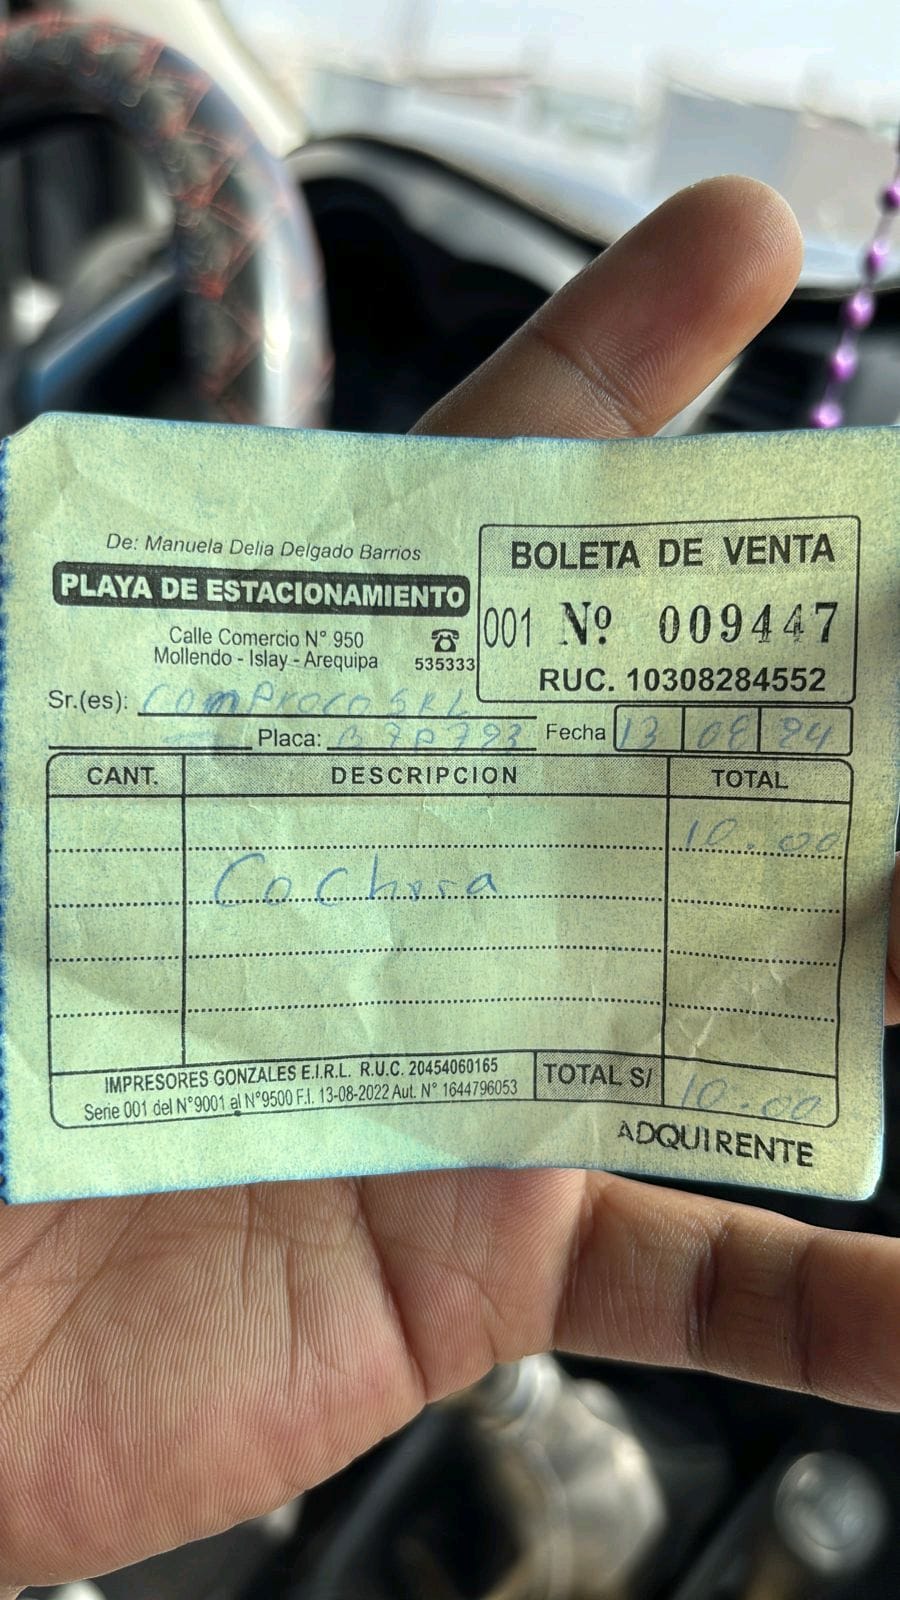 De: Manuela Delia Delgado Barrios
PLAYA DE ESTACIONAMIENTO
Calle Comercio N° 950
Mollendo - Islay - Arequipa
☎ 535333
BOLETA DE VENTA
001 Nº 009447
RUC. 10308284552
Sr.(es): Comproco SRL
Placa: Fecha 13 08 24
CANT. DESCRIPCION TOTAL
10.00
Cochera
IMPRESORES GONZALES E.I.R.L. R.U.C. 20454060165
Serie 001 del N°9001 al N°9500 F.I. 13-08-2022 Aut. N° 1644796053
TOTAL S/ 10.00
ADQUIRENTE